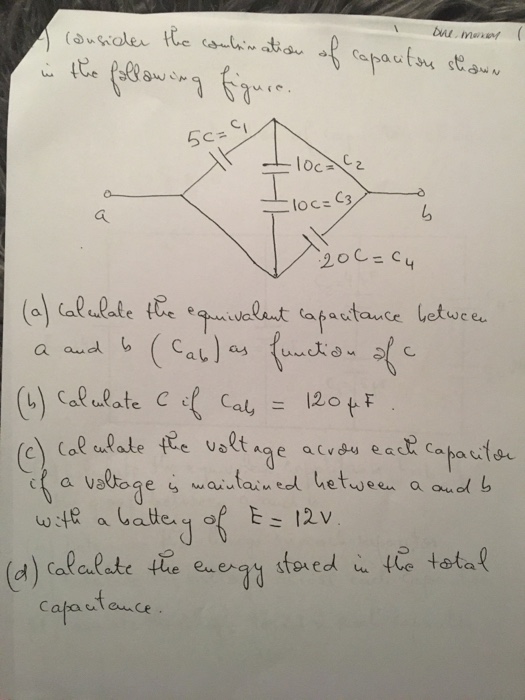 ) Consider the combination of capacitors shown
in the following figure.
5C = C1
10C = C2
10C = C3
a
b
20C = C4
(a) Calculate the equivalent capacitance between
a and b (Cab) as function of C
(b) Calculate C if Cab = 120 μF.
(c) Calculate the voltage across each capacitor
if a voltage is maintained between a and b
with a battery of E = 12V.
(d) Calculate the energy stored in the total
capacitance.